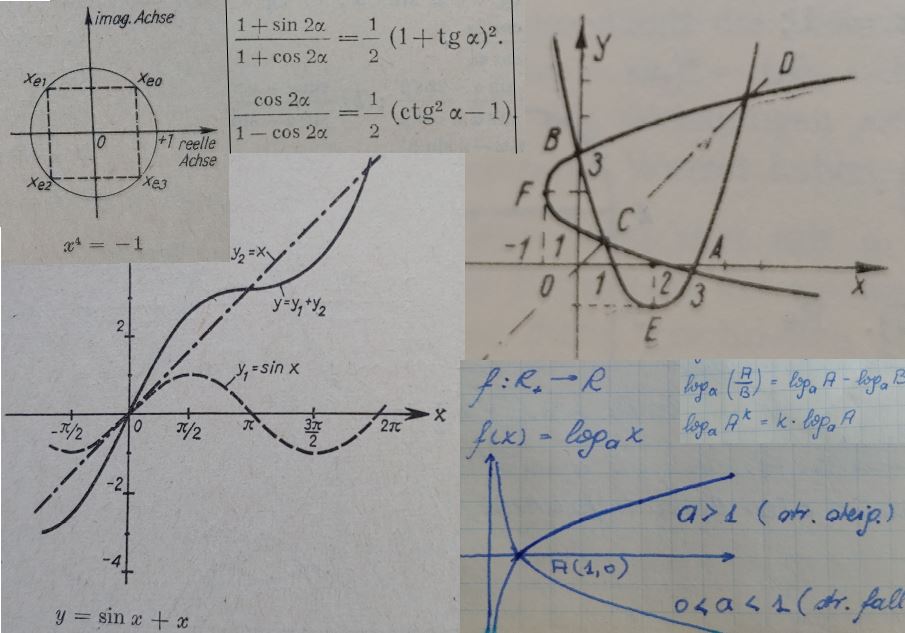 imag. Achse
x_e1 x_e0
0 +1 reelle
Achse
x_e2 x_e3
x⁴ = −1
(1 + sin 2α)/(1 + cos 2α) = 1/2 (1 + tg α)².
(cos 2α)/(1 − cos 2α) = 1/2 (ctg² α − 1)
y
D
B
3
F
C
-1 1 A
0 1 2 3 x
E
y₂=x
y=y₁+y₂
2
y₁=sin x
-π/2 0 π/2 π 3π/2 2π x
-2
-4
y = sin x + x
f: R₊ → R
f(x) = logₐ x
logₐ (A/B) = logₐ A - logₐ B
logₐ Aᵏ = k · logₐ A
a > 1 (str. steig.)
A(1,0)
0 < a < 1 (str. fall